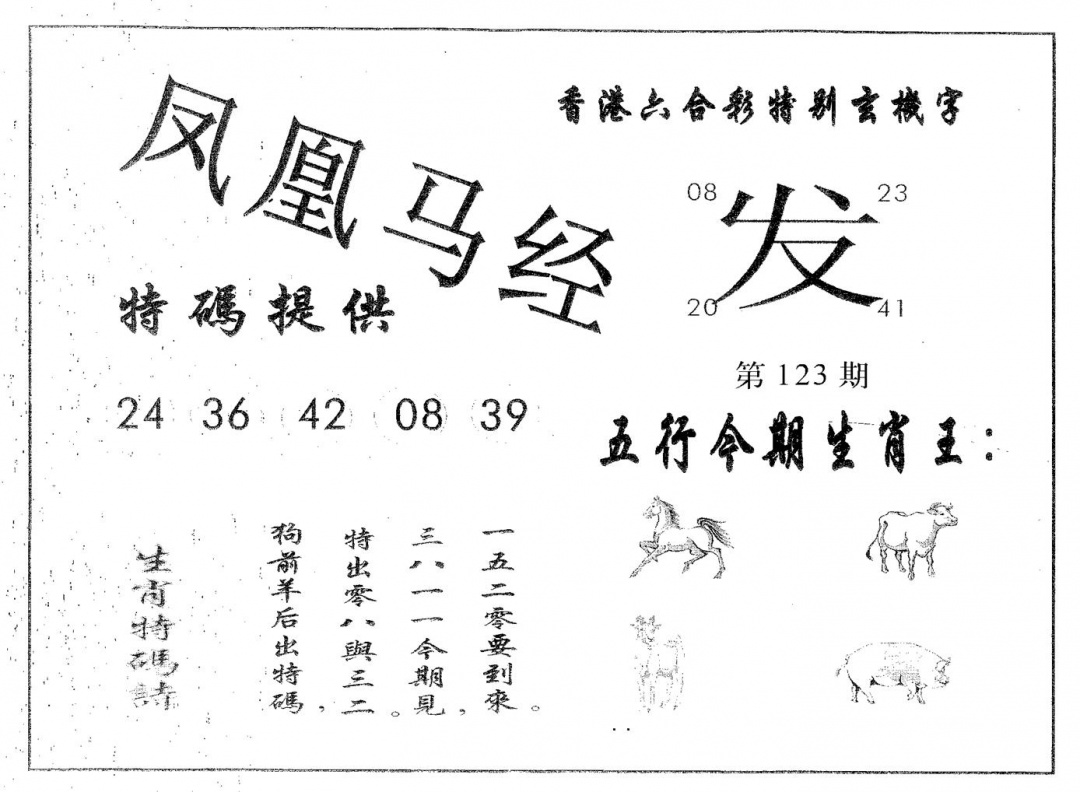 凤凰马经
香港六合彩特别玄機字
08 23
发
20 41
特碼提供
第 123 期
24 36 42 08 39
五行今期生肖王：
生肖特碼詩
狗前羊后出特碼，
特出零八與三二。
三八一一今期見，
一五二零要到來。